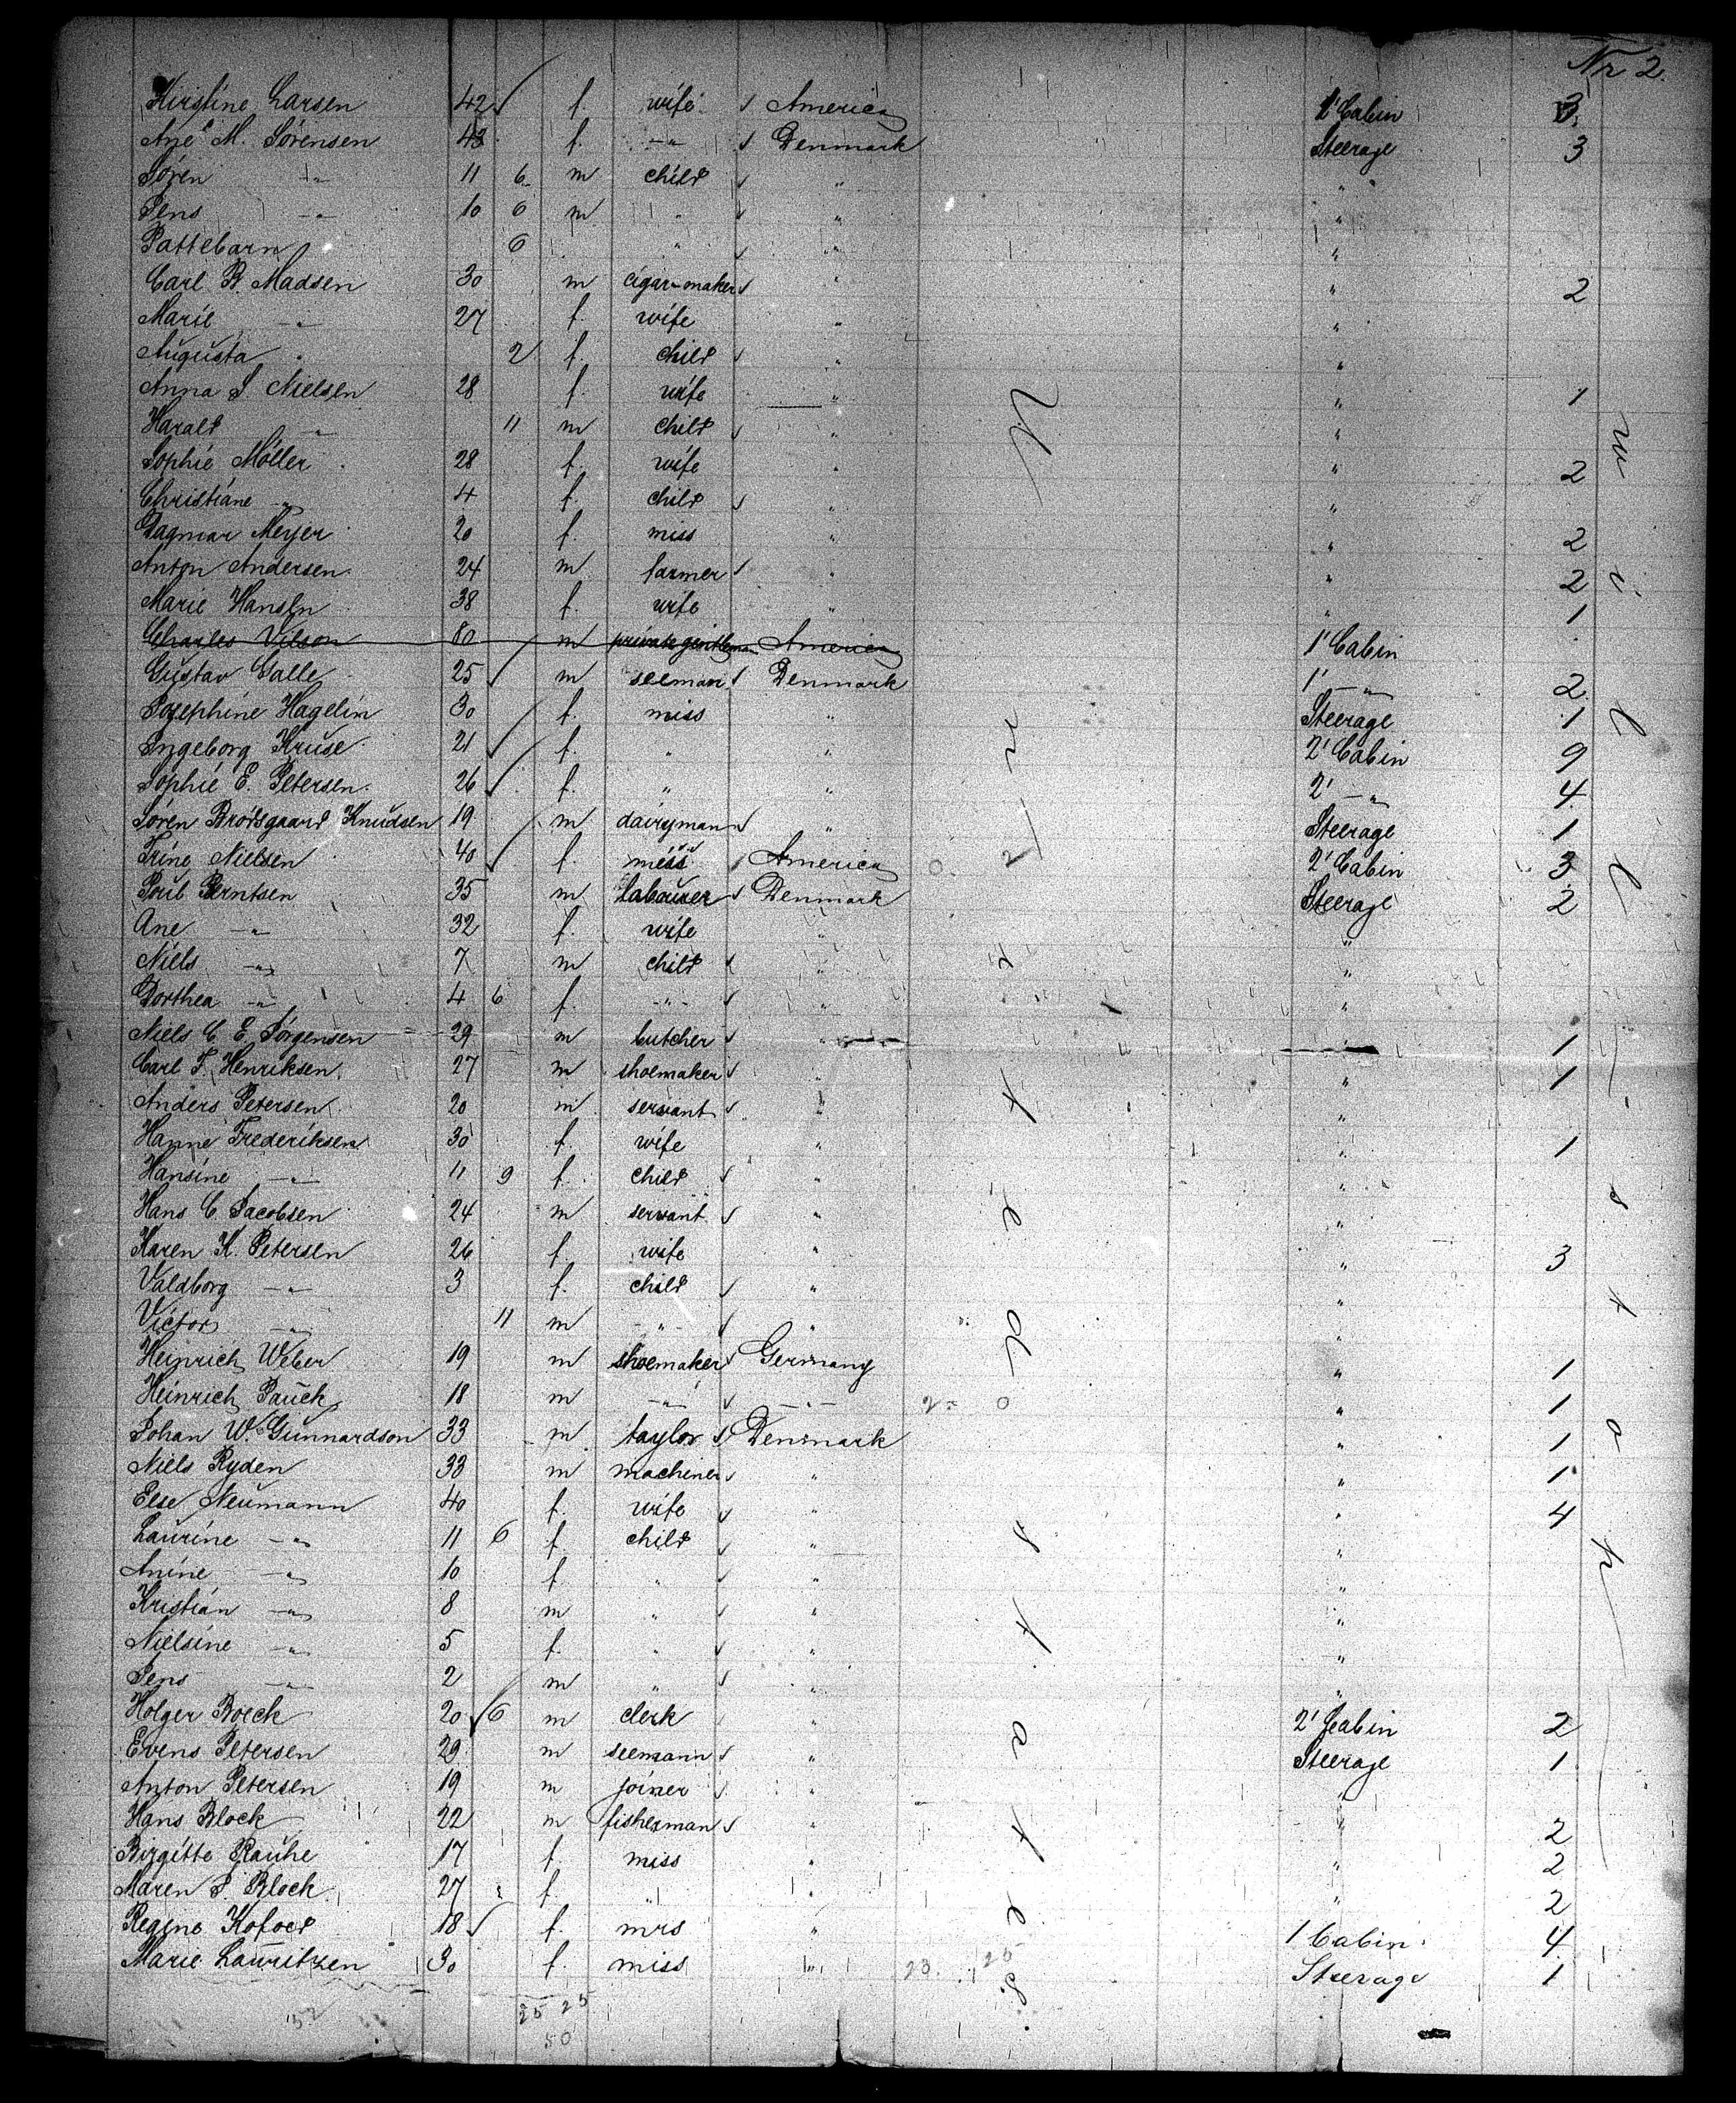 Nr 2.
Kirstine Larsen 42 f. wife America 2' Cabin 3
Ane M. Sørensen 43 f. -"- Denmark Steerage 3
Søren -"- 11 6 m child " "
Jens -"- 10 6 m " " "
Pattebarn 6 " " "
Carl B. Madsen 30 m cigar-maker " " 2
Marie -"- 27 f. wife " "
Augusta " 2 f. child " "
Anna S Nielsen 28 f. wife " " 1
Harald -"- 11 m child " "
Sophie Möller 28 f. wife " " 2
Christiane -"- 4 f. child " "
Dagmar Meyer 20 f. miss " " 2
Anton Andersen 24 m farmer " " 2
Marie Hansen 38 f. wife " " 1
Charles Vilson 80 m private gentleman America 1' Cabin
Gustav Galle 25 m seeman Denmark 1' -"- 2
Josephine Hagelin 30 f. miss " Steerage 1
Ingeborg Kruse 21 f. " " 2' Cabin 9
Sophie E. Petersen 26 f. " " 2' -"- 4
Søren Brødsgaard Knudsen 19 m dairyman " Steerage 1
Trine Nielsen 40 f. miss America 2' Cabin 3
Poul Berntsen 35 m labourer Denmark Steerage 2
Ane -"- 32 f. wife " "
Niels -"- 7 m child " "
Dorthea -"- 4 6 f. -"- " "
Niels C E Jørgensen 29 m butcher " " 1
Carl F. Henriksen 27 m shoemaker " " 1
Anders Petersen 20 m servant " "
Hanne Frederiksen 30 f. wife " " 1
Hansine -"- 11 9 f. child " "
Hans C. Jacobsen 24 m servant " "
Karen K. Petersen 26 f. wife " " 3
Valdborg -"- 3 f. child " "
Victor -"- 11 m -"- " "
Heinrich Weber 19 m shoemaker Germany " 1
Heinrich Pauck 18 m -"- -"- " 1
Johan W. Gunnardson 33 m taylor Denmark " 1
Niels Ryden 33 m machiner " " 1
Else Neumann 40 f. wife " " 4
Laurine -"- 11 6 f. child " "
Anine -"- 10 f. " " "
Kristian -"- 8 m " " "
Nielsine -"- 5 f. " " "
Jens -"- 2 m " " "
Holger Boeck 20 6 m clerk " 2' Cabin 2
Evens Petersen 29 m seemann " Steerage 1
Anton Petersen 19 m joiner " "
Hans Block 22 m fisherman " " 2
Birgitte Rauhe 17 f. miss " " 2
Maren P. Block 27 f. " " " 2
Regine Kofoed 18 f. mrs " 1 Cabin 4
Marie Lauritzen 30 f. miss " Steerage 1
United states.
23. 25
52 25 25
50